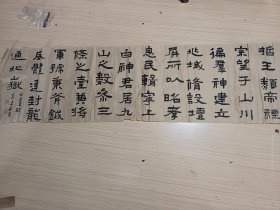 哲王類帝禋
宗望于山川
徧羣神建立
兆域脩設壇
屏所以昭孝
息民輯寧上
白神君居九
山之數參三
條之壹兼將
軍號秉斧鉞
體連封龍
通北嶽